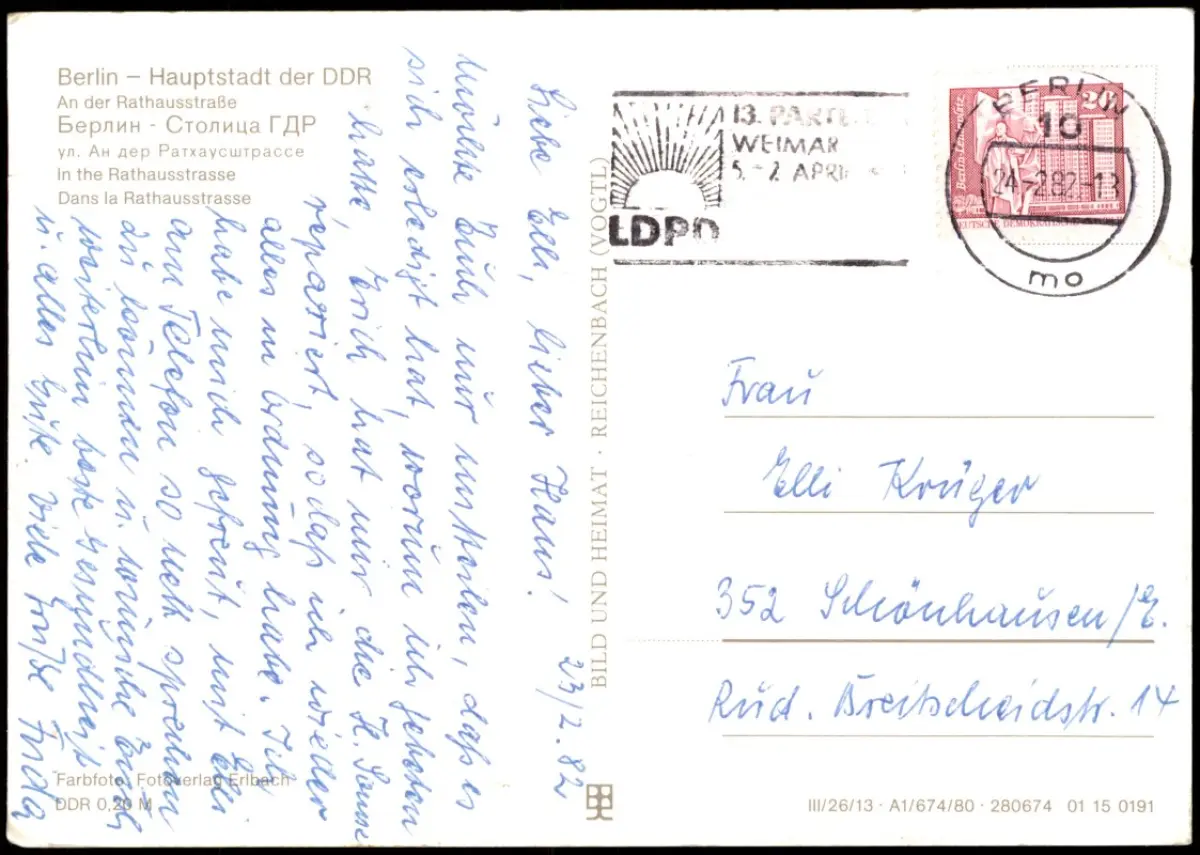 Berlin – Hauptstadt der DDR
An der Rathausstraße
Берлин - Столица ГДР
ул. Ан дер Ратхаусштрассе
In the Rathausstrasse
Dans la Rathausstrasse
Liebe Elli, lieber Hans! 23/2.82
Möchte Euch nur mitteilen, daß es
sich erledigt hat, worum ich gebeten
hatte, Erich hat mir die H.
repariert, sodaß ich wieder
alles in Ordnung habe. Ich
habe mich gefreut, mit Elli
am Telefon so nett sprechen
zu können u. wünsche Euch
weiterhin beste Gesundheit
u. alles Gute. Viele Grüße Frida
Farbfoto: Fotoverlag Erlbach
DDR 0,20 M
BILD UND HEIMAT · REICHENBACH (VOGTL)
13. PARTEI
WEIMAR
5.-7. APRIL
LDPD
BERLIN
10
24-2.82-13
mo
20
Berlin-Leninplatz
DEUTSCHE DEMOKRATISCHE
Frau
Elli Krüger
352 Schönhausen/E.
Rud. Breitscheidstr. 14
III/26/13 · A1/674/80 · 280674 01 15 0191